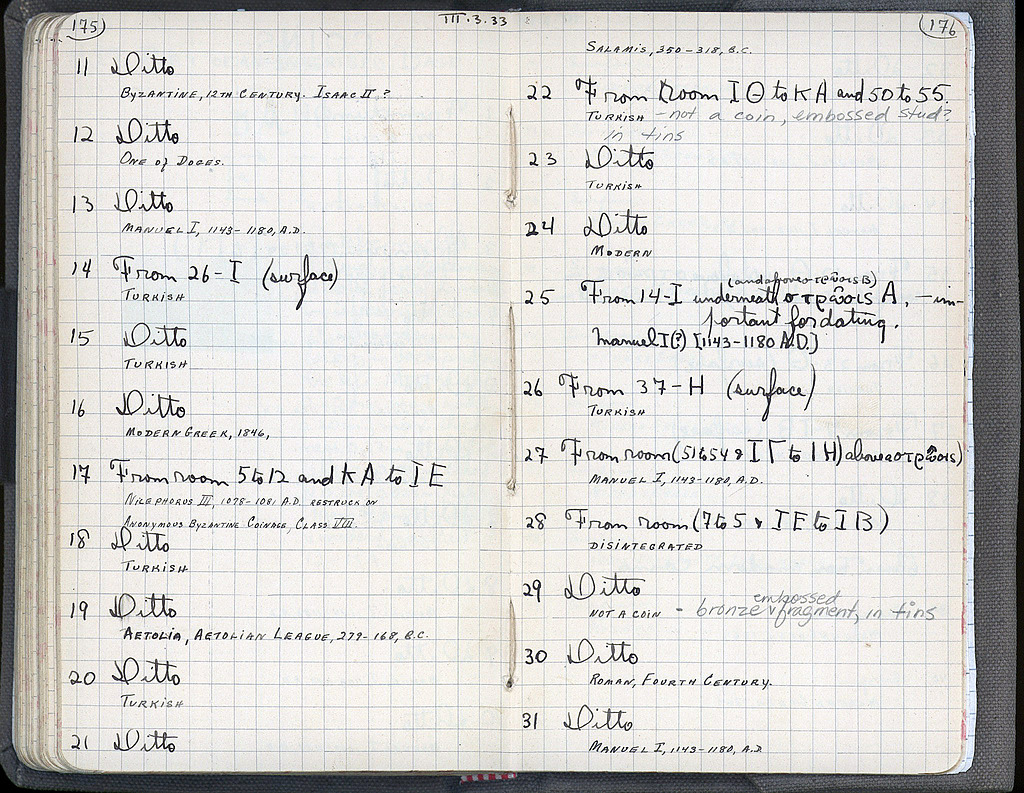 175
III.3.33
11 Ditto
BYZANTINE, 12TH CENTURY. ISAAC II ?
12 Ditto
ONE of DOGES.
13 Ditto
MANUEL I, 1143-1180, A.D.
14 From 26-I (surface)
TURKISH
15 Ditto
TURKISH
16 Ditto
MODERN GREEK, 1846,
17 From room 5 to 12 and KA to IE
NICEPHORUS III, 1078-1081 A.D. RESTRUCK ON
ANONYMOUS BYZANTINE COINAGE, CLASS VIII.
18 Ditto
TURKISH
19 Ditto
AETOLIA, AETOLIAN LEAGUE, 279-168, B.C.
20 Ditto
TURKISH
21 Ditto
176
SALAMIS, 350-318, B.C.
22 From Room IΘ to KA and 50 to 55.
TURKISH - not a coin, embossed stud?
in tins
23 Ditto
TURKISH
24 Ditto
MODERN
(and above στρῶσις B)
25 From 14-I underneath στρῶσις A, -im-
portant for dating.
Manuel I (?) [1143-1180 A.D.]
26 From 37-H (surface)
TURKISH
27 From room (51 to 54 & IΓ to IH) above a στρῶσις)
MANUEL I, 1143-1180, A.D.
28 From room (7 to 5 & IE to IB)
DISINTEGRATED
29 Ditto
NOT A COIN - bronze embossed fragment, in tins
30 Ditto
ROMAN, FOURTH CENTURY.
31 Ditto
MANUEL I, 1143-1180, A.D.